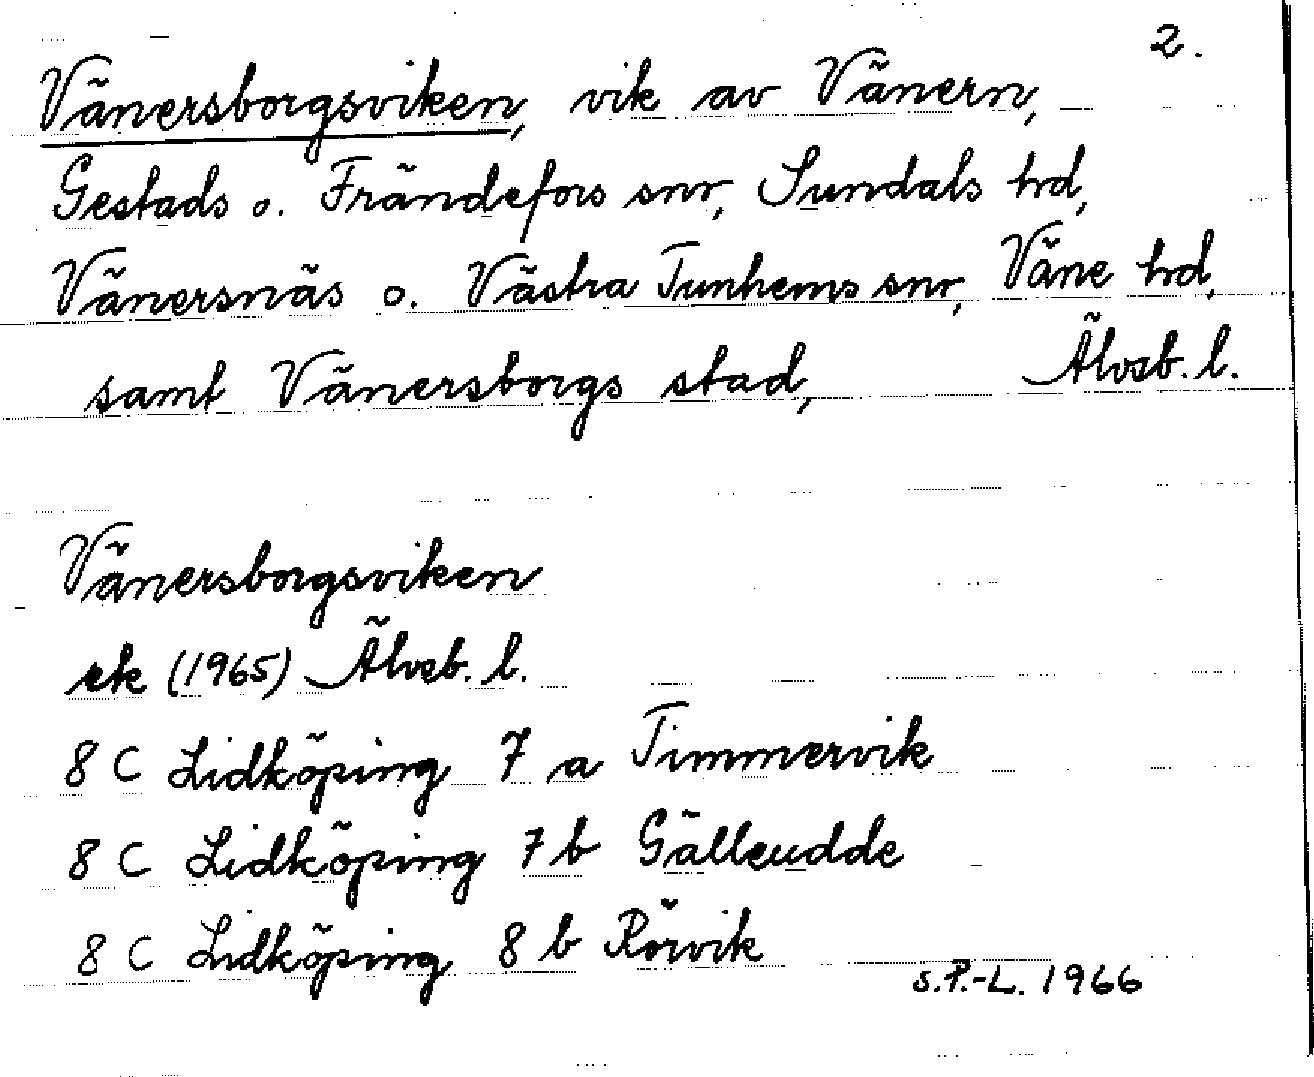 2.
Vänersborgsviken, vik av Vänern,
Gestads o. Frändefors snr, Sundals hd,
Vänersnäs o. Västra Tunhems snr, Väne hd,
samt Vänersborgs stad, Älvsb. l.
Vänersborgsviken
ek (1965) Älvsb. l.
8 C Lidköping 7 a Timmervik
8 C Lidköping 7 b Gälleudde
8 C Lidköping 8 b Rörvik
S.P.-L. 1966